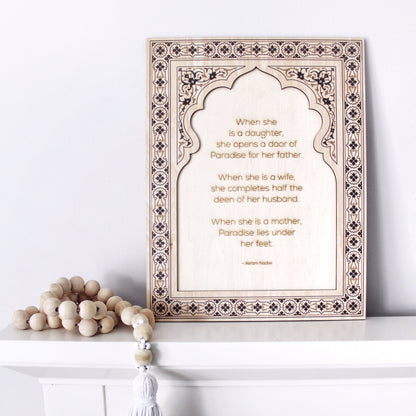 When she
is a daughter,
she opens a door of
Paradise for her father.
When she is a wife,
she completes half the
deen of her husband.
When she is a mother,
Paradise lies under
her feet.
- Akram Nadwi